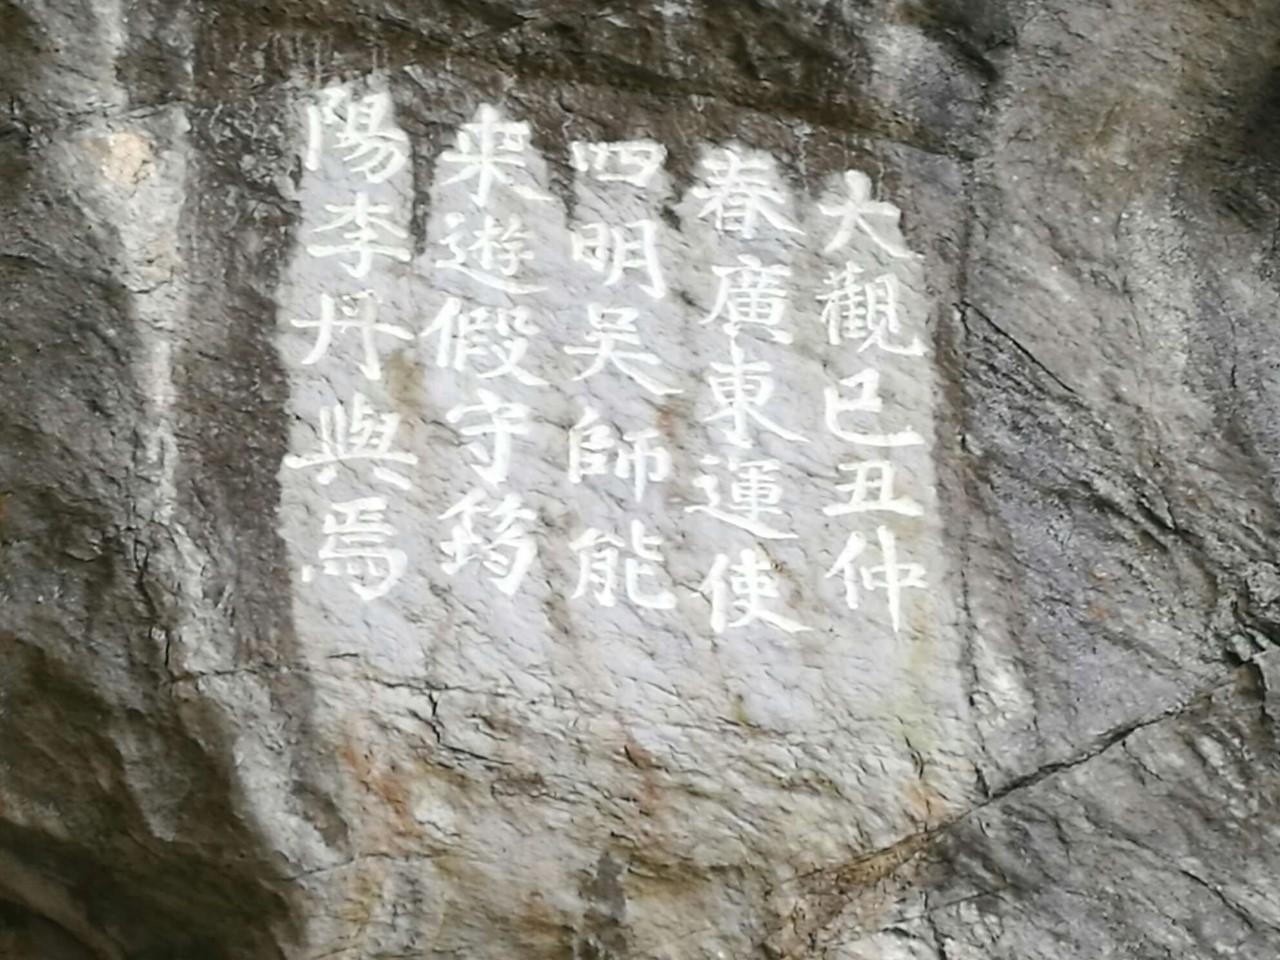 大觀已丑仲
春廣東運使
四明吴師能
来遊假守筠
陽李丹與焉